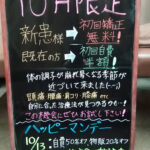 10月限定
新患様→初回矯正無料!
既在の方→初回自費半額!
体の調子が崩れ易くなる季節が
近づいて来ました(-_-)
頭痛・腰痛・肩コリ・膝痛 etc
自分に合った治療法が見つかるかも…
この機会にぜひお試し下さい!
ハッピーマンデー
10/13 自費50%オフ 物販20%オフ